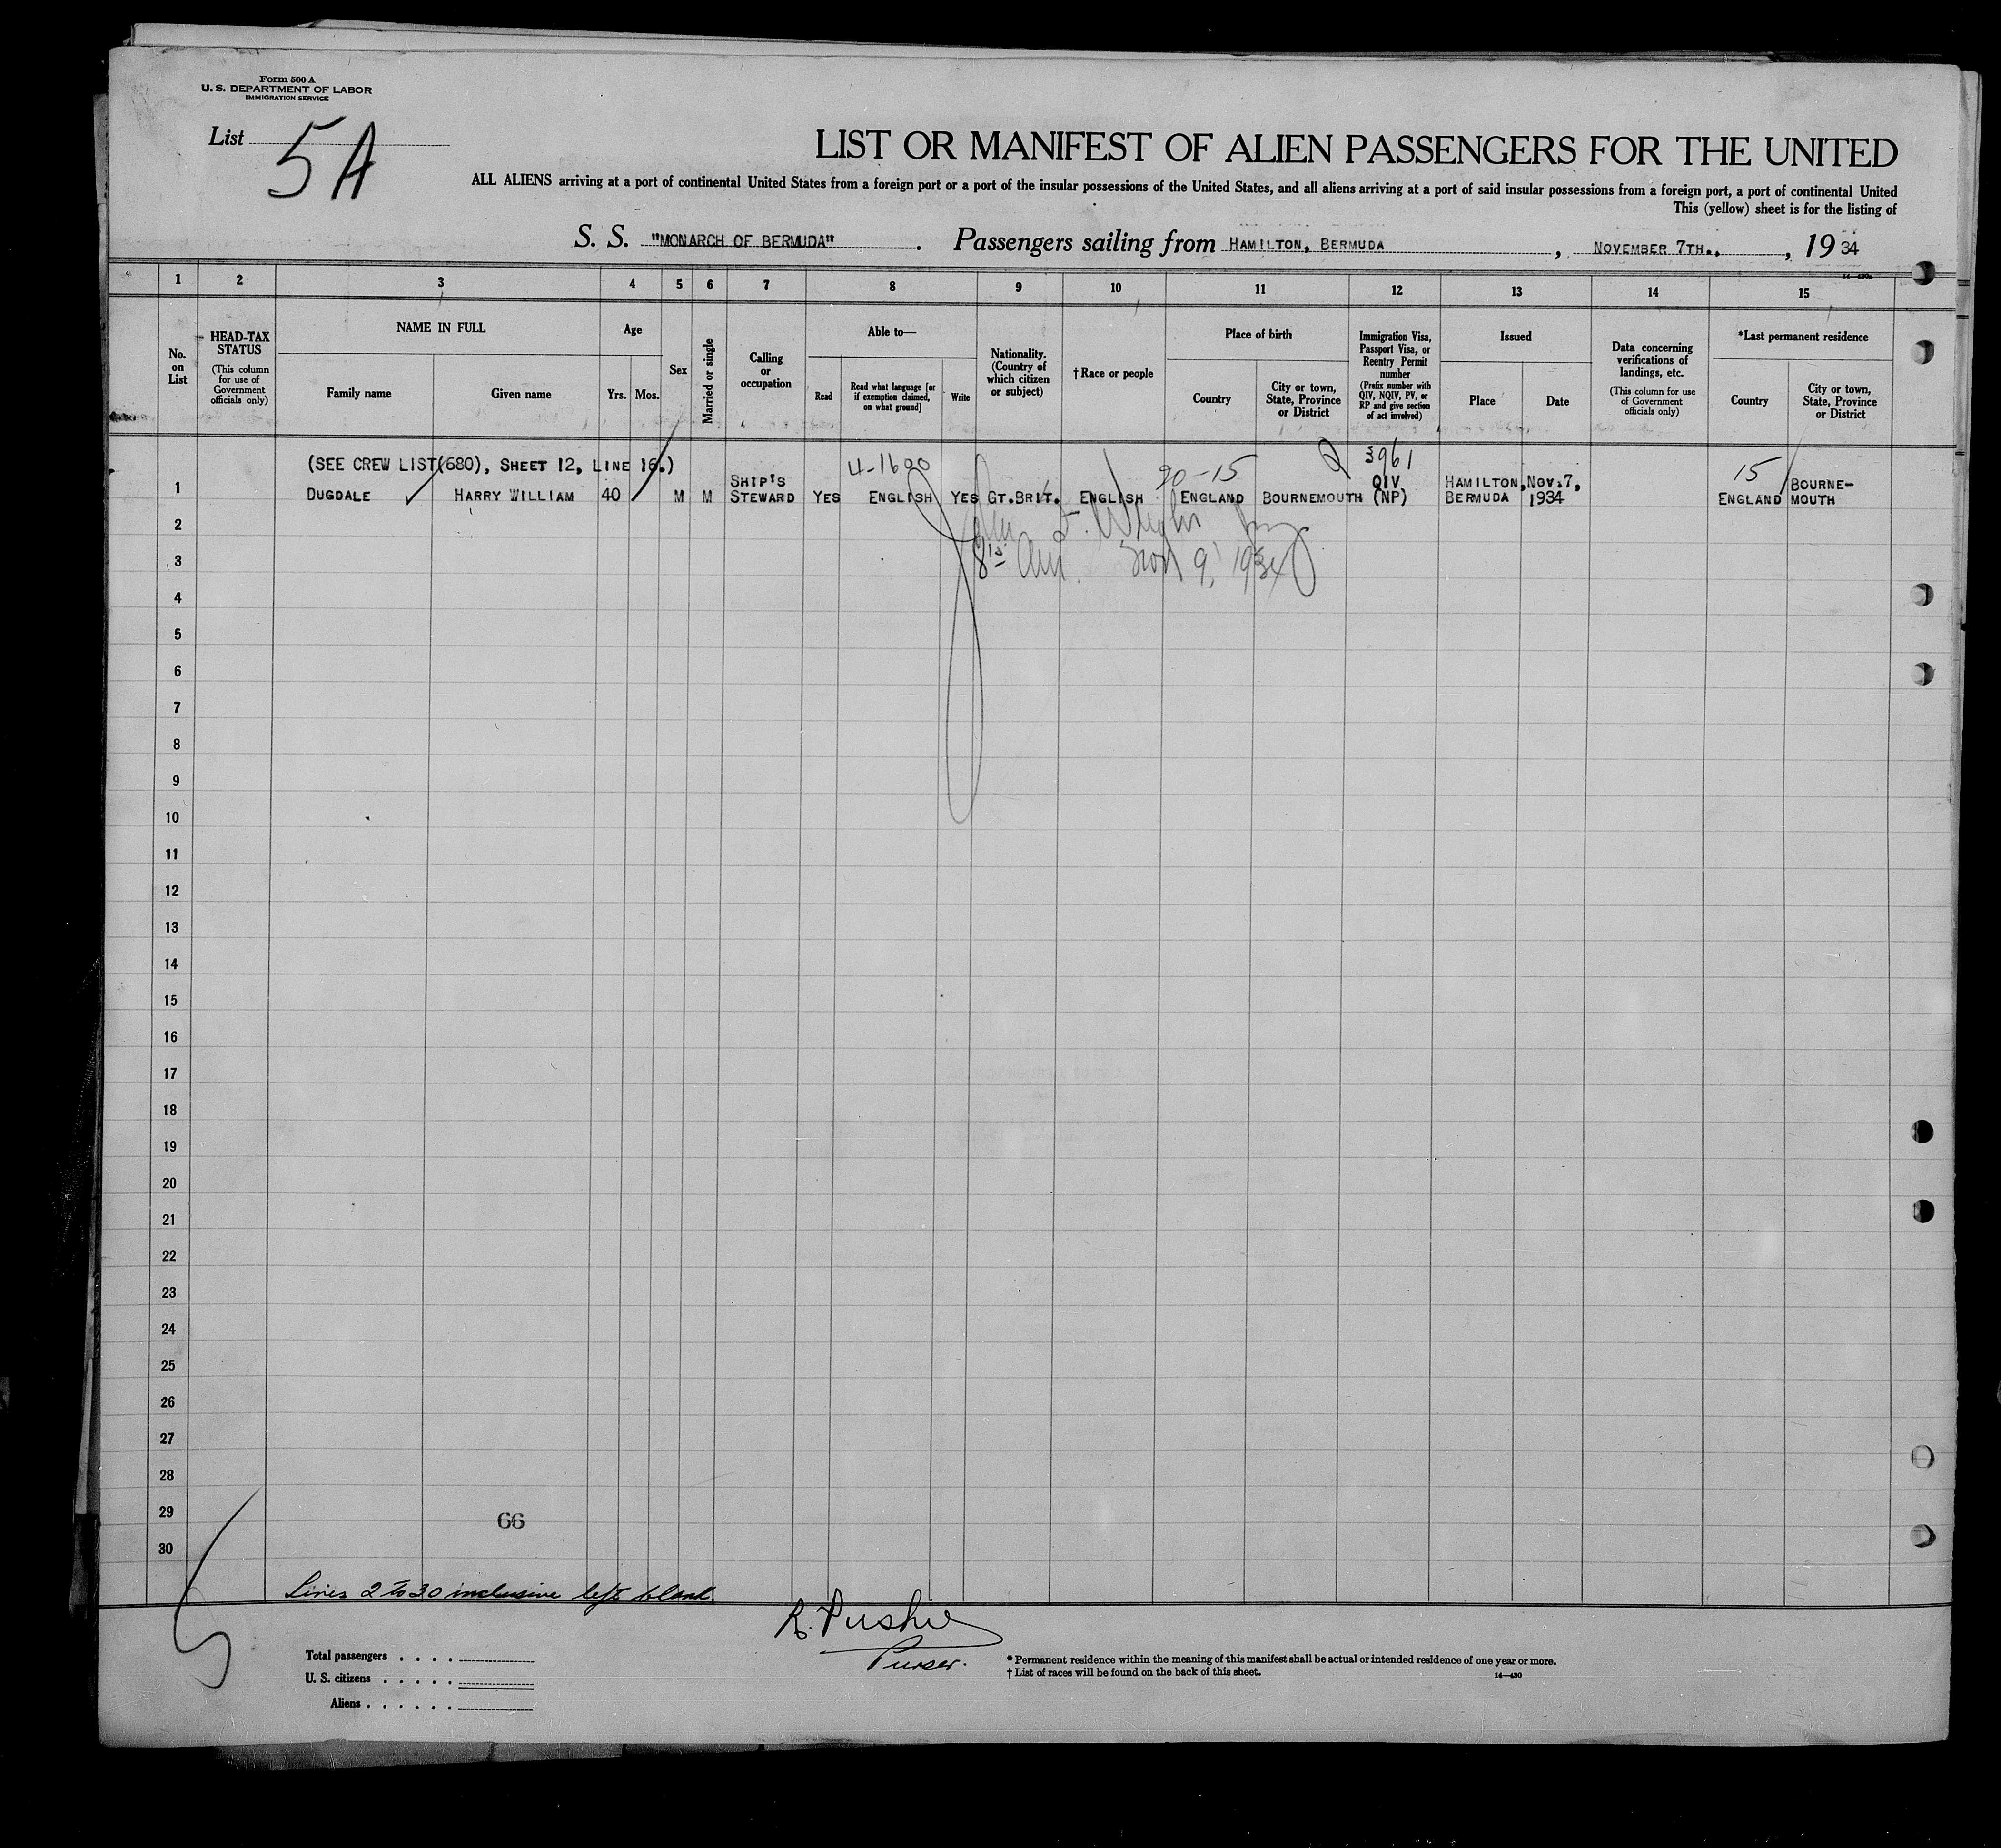 Form 500 A
U. S. DEPARTMENT OF LABOR
IMMIGRATION SERVICE
List 5A
LIST OR MANIFEST OF ALIEN PASSENGERS FOR THE UNITED
ALL ALIENS arriving at a port of continental United States from a foreign port or a port of the insular possessions of the United States, and all aliens arriving at a port of said insular possessions from a foreign port, a port of continental United
This (yellow) sheet is for the listing of
S. S. "MONARCH OF BERMUDA". Passengers sailing from HAMILTON, BERMUDA, NOVEMBER 7TH., 1934
14-430a
1 2 3 4 5 6 7 8 9 10 11 12 13 14 15
No. on List
HEAD-TAX STATUS
(This column for use of Government officials only)
NAME IN FULL
Family name
Given name
Age
Yrs.
Mos.
Sex
Married or single
Calling or occupation
Able to—
Read
Read what language [or if exemption claimed, on what ground]
Write
Nationality. (Country of which citizen or subject)
†Race or people
Place of birth
Country
City or town, State, Province or District
Immigration Visa, Passport Visa, or Reentry Permit number
(Prefix number with QIV, NQIV, PV, or RP and give section of act involved)
Issued
Place
Date
Data concerning verifications of landings, etc.
(This column for use of Government officials only)
*Last permanent residence
Country
City or town, State, Province or District
(SEE CREW LIST(680), SHEET 12, LINE 16.) 4-1600 90-15 3961 15
1 DUGDALE HARRY WILLIAM 40 M M SHIP'S STEWARD YES ENGLISH YES GT.BRIT. ENGLISH ENGLAND BOURNEMOUTH QIV (NP) HAMILTON, BERMUDA NOV.7, 1934 ENGLAND BOURNE-MOUTH
2
3 Nov 9, 1934
4
5
6
7
8
9
10
11
12
13
14
15
16
17
18
19
20
21
22
23
24
25
26
27
28
29 66
30
Lines 2 to 30 inclusive left blank
R. Pushie
Purser.
Total passengers . . . .
U. S. citizens . . . . .
Aliens . . . . . .
* Permanent residence within the meaning of this manifest shall be actual or intended residence of one year or more.
† List of races will be found on the back of this sheet.
14—430